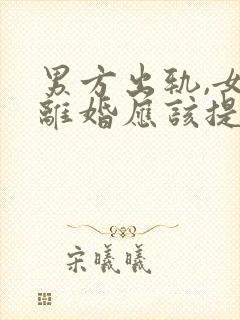 男方出轨,女
離婚應該提
宋曦曦